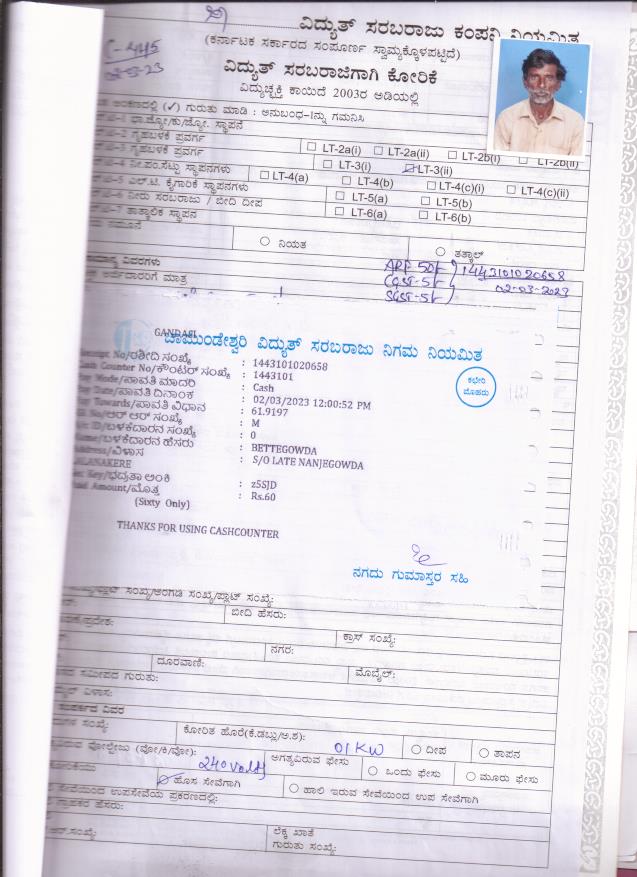 ವಿದ್ಯುತ್ ಸರಬರಾಜು ಕಂಪನಿ ನಿಯಮಿತ
(ಕರ್ನಾಟಕ ಸರ್ಕಾರದ ಸಂಪೂರ್ಣ ಸ್ವಾಮ್ಯಕ್ಕೊಳಪಟ್ಟಿದೆ)
C-445
02-03-23
ವಿದ್ಯುತ್ ಸರಬರಾಜಿಗಾಗಿ ಕೋರಿಕೆ
ವಿದ್ಯುಚ್ಛಕ್ತಿ ಕಾಯಿದೆ 2003ರ ಅಡಿಯಲ್ಲಿ
ಅಂಕಣದಲ್ಲಿ (✓) ಗುರುತು ಮಾಡಿ : ಅನುಬಂಧ-1ನ್ನು ಗಮನಿಸಿ
-1 ಭಾ.ಜ್ಯೋ/ಕು/ಜ್ಯೋ. ಸ್ಥಾಪನ
-2 ಗೃಹಬಳಕೆ ಪ್ರವರ್ಗ
-3 ಗೃಹಬಳಕೆ ಪ್ರವರ್ಗ □ LT-2a(i) □ LT-2a(ii) □ LT-2b(i) □ LT-2b(ii)
-4 ನೀ.ಪಂ.ಸೆಟ್ಟು ಸ್ಥಾಪನಗಳು □ LT-3(i) □ LT-3(ii)
-5 ಎಲ್.ಟಿ. ಕೈಗಾರಿಕೆ ಸ್ಥಾಪನಗಳು □ LT-4(a) □ LT-4(b) □ LT-4(c)(i) □ LT-4(c)(ii)
-6 ನೀರು ಸರಬರಾಜು / ಬೀದಿ ದೀಪ □ LT-5(a) □ LT-5(b)
-7 ತಾತ್ಕಾಲಿಕ ಸ್ಥಾಪನ □ LT-6(a) □ LT-6(b)
ನಮೂನೆ ○ ನಿಯತ ○ ತತ್ಕಾಲ್
ವಿವರಗಳು
ಅರ್ಜಿದಾರರಿಗೆ ಮಾತ್ರ
APP-50/- 1443101020658
CGST-5/- 02-03-2023
SGST-5/-
GANDASI
ಚಾಮುಂಡೇಶ್ವರಿ ವಿದ್ಯುತ್ ಸರಬರಾಜು ನಿಗಮ ನಿಯಮಿತ
No/ರಶೀದಿ ಸಂಖ್ಯೆ : 1443101020658
Cash Counter No/ಕೌಂಟರ್ ಸಂಖ್ಯೆ : 1443101
Mode/ಪಾವತಿ ಮಾದರಿ : Cash
Date/ಪಾವತಿ ದಿನಾಂಕ : 02/03/2023 12:00:52 PM
Towards/ಪಾವತಿ ವಿಧಾನ : 61.9197
No/ಆರ್ ಆರ್ ಸಂಖ್ಯೆ : M
ID/ಬಳಕೆದಾರನ ಸಂಖ್ಯೆ : 0
Name/ಬಳಕೆದಾರನ ಹೆಸರು : BETTEGOWDA
Address/ವಿಳಾಸ : S/O LATE NANJEGOWDA
ALANAKERE
Key/ಭದ್ರತಾ ಅಂಕಿ : z5SJD
Amount/ಮೊತ್ತ : Rs.60
(Sixty Only)
ಕಛೇರಿ
ಮೊಹರು
THANKS FOR USING CASHCOUNTER
ನಗದು ಗುಮಾಸ್ತರ ಸಹಿ
ಸಂಖ್ಯೆ/ಅಂಗಡಿ ಸಂಖ್ಯೆ/ಪ್ಲಾಟ್ ಸಂಖ್ಯೆ:
ಬೀದಿ ಹೆಸರು:
ಕ್ರಾಸ್ ಸಂಖ್ಯೆ:
ನಗರ:
ದೂರವಾಣಿ: ಮೊಬೈಲ್:
ಸಮೀಪದ ಗುರುತು:
ವಿಳಾಸ:
ಸಂಪರ್ಕದ ವಿವರ
ಸಂಖ್ಯೆ: ಕೋರಿತ ಹೊರೆ(ಕೆ.ಡಬ್ಲು/ಅ.ಶ): 01 KW ○ ದೀಪ ○ ತಾಪನ
ವೋಲ್ಟೇಜು (ವೋ/ಕಿ/ವೋ): 240 volts ಅಗತ್ಯವಿರುವ ಫೇಸು ○ ಒಂದು ಫೇಸು ○ ಮೂರು ಫೇಸು
ಹೊಸ ಸೇವೆಗಾಗಿ ○ ಹಾಲಿ ಇರುವ ಸೇವೆಯಿಂದ ಉಪ ಸೇವೆಗಾಗಿ
ಸೇವೆಯಿಂದ ಉಪಸೇವೆಯ ಪ್ರಕರಣದಲ್ಲಿ:
ಗ್ರಾಹಕರ ಹೆಸರು:
ಆರ್.ಸಂಖ್ಯೆ: ಲೆಕ್ಕ ಖಾತೆ
ಗುರುತು ಸಂಖ್ಯೆ: